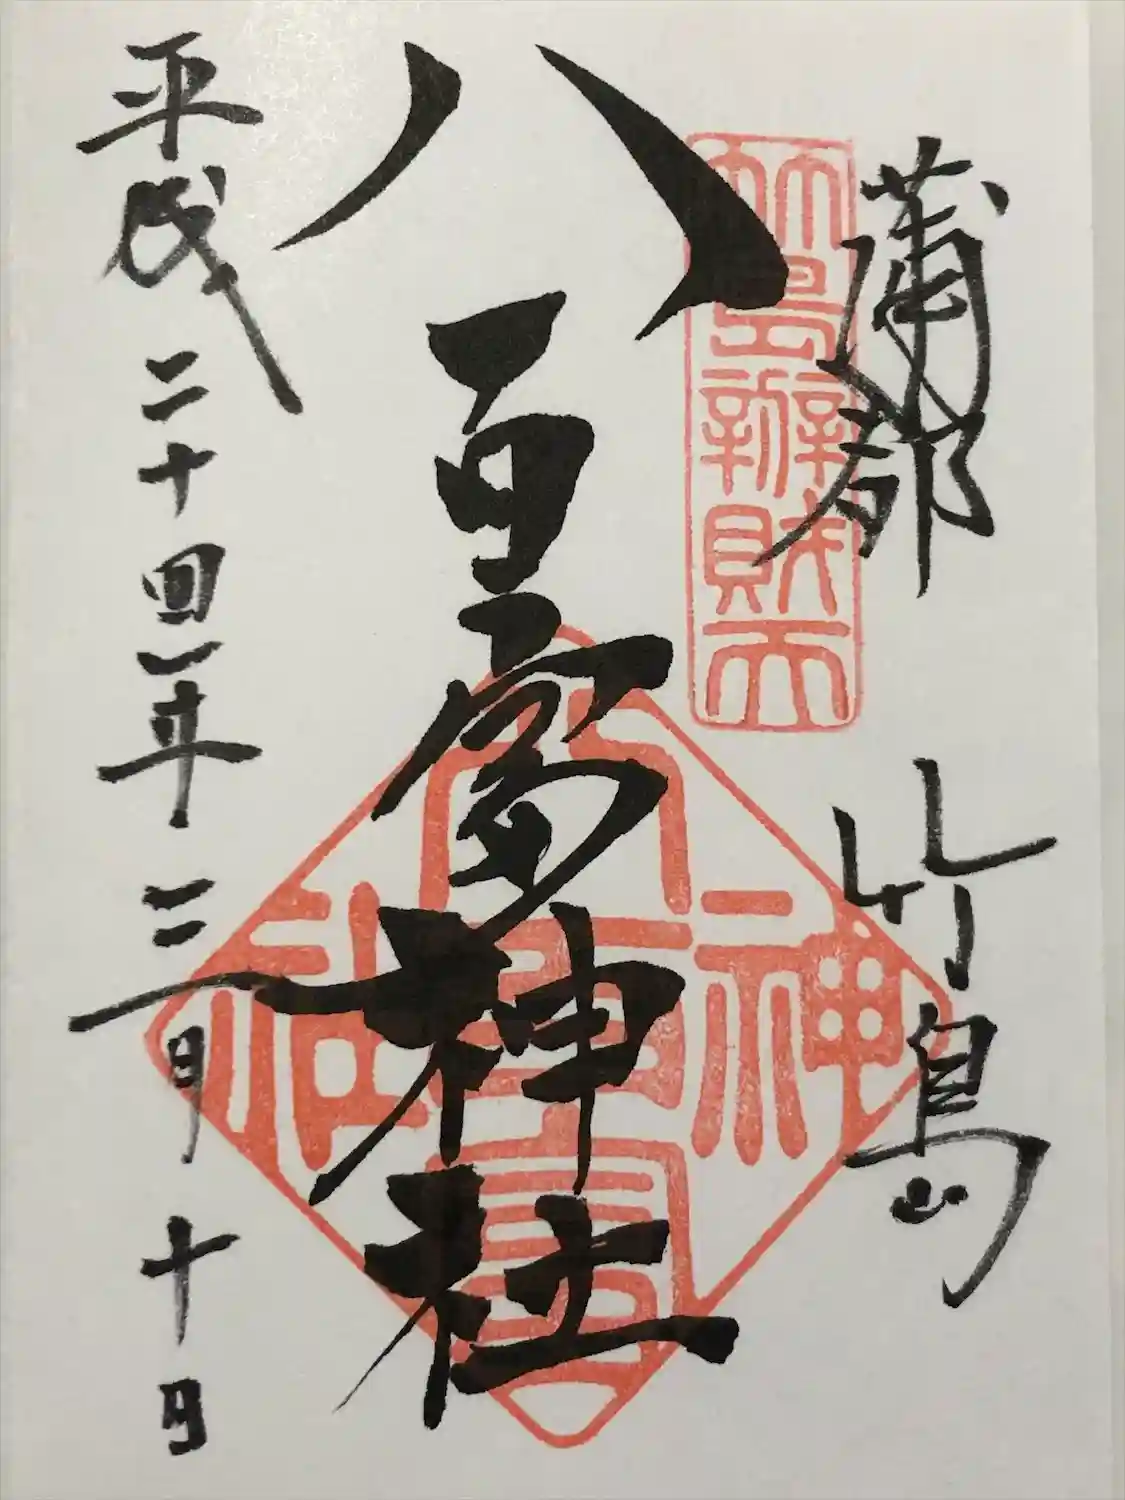 蒲郡 竹島
竹島辨財天
八百富神社
八百富神社
平成二十四年三月十日